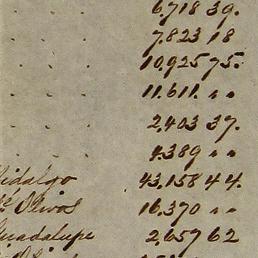 . . . 6.718 39.
. . . 7.823 18
. . . 10.925 75.
. . . 11.611. " "
. . . 2,403 37.
. . . 4.389 " "
Hidalgo 43,158 44.
Olivos 16,370 " "
Guadalupe 2,657 62